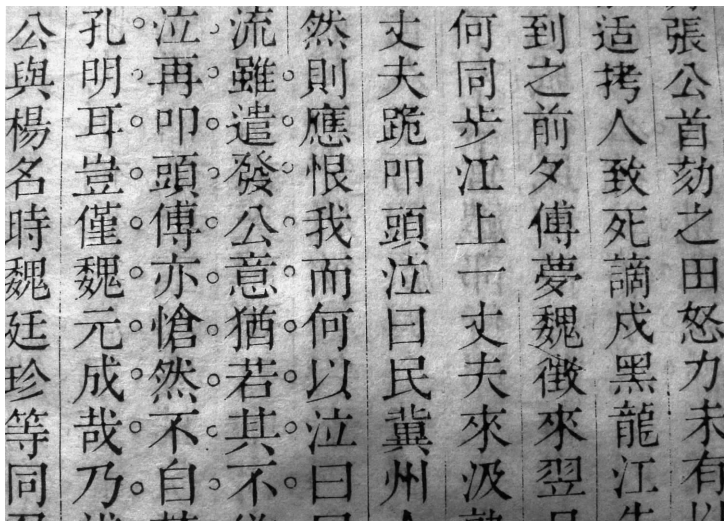 張公首劾之田怒力未有以
适拷人致死謫戍黑龍江
到之前夕傅夢魏徵來翌
何同步江上一丈夫來汲
丈夫跪叩頭泣曰民冀州
然則應恨我而何以泣曰
流雖遣發公意猶若其不
泣再叩頭傅亦愴然不自
孔明耳豈僅魏元成哉乃
公與楊名時魏廷珍等同